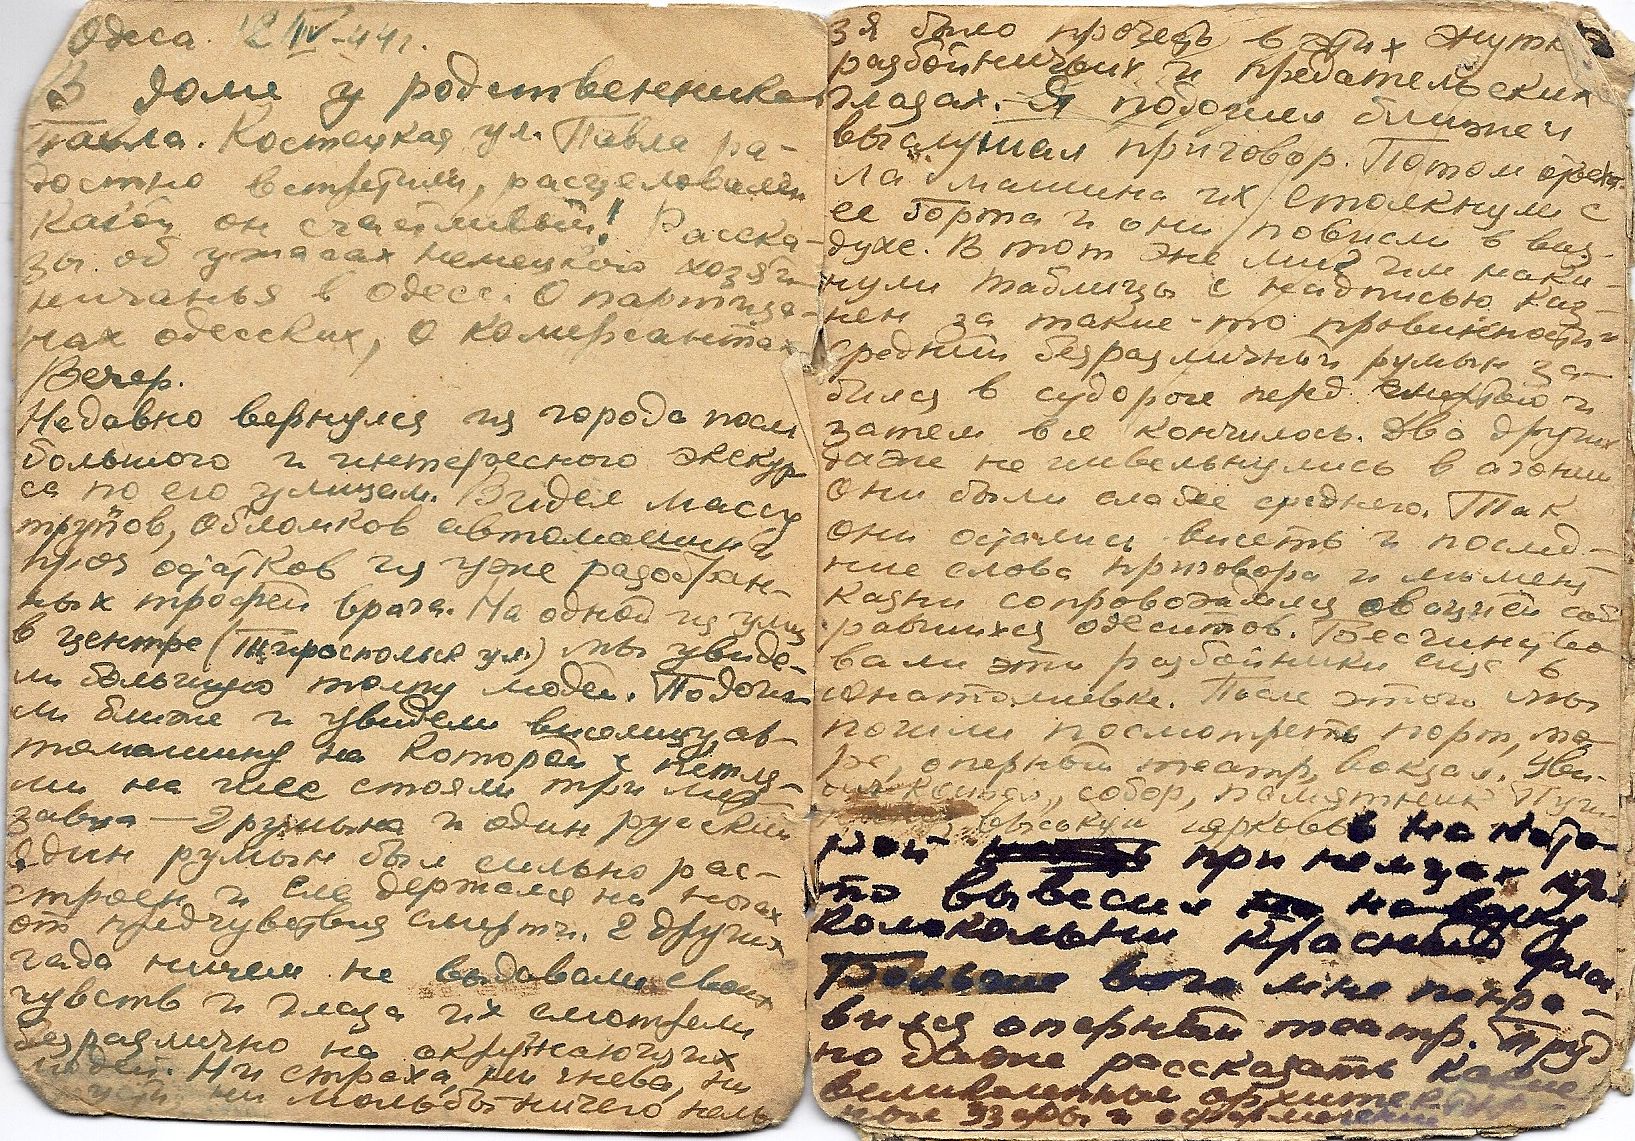 Одеса. 12 IV-44 г.
В доме у родственника
Павла. Костецкая ул. Павла ра-
достно встретили, расцеловали
Какой он счастливый! Расска-
зы об ужасах немецкого хозяй-
ничанья в Одесе. О партиза-
нах одесских, о комерсантах
Вечер.
Недавно вернулся из города после
большого и интересного экскур
са по его улицам. Видел массу
трупов, обломков автомашин и
остатков из уже разобран-
ных трофей врага. На одной из улиц
в центре (Тираспольск ул.) мы увиде-
ли большую толпу людей. Подош
ли ближе и увидели виселицу, ав-
томашину на которой с петля-
ми на шее стояли три мер
завца — 2 румына и один русский
Один румын был сильно рас-
строен и еле держался на ногах
от предчувствия смерти. 2 других
гада ничем не выдавали своих
чувств и глаза их смотрели
безразлично на окружающих
людей. Ни страха, ни гнева, ни
ни мольбы ничего нель
зя было прочесть в этих жутк
разбойничьих и предательских
глазах. Я подошел ближе и
выслушал приговор. Потом отъеха-
ла машина их столкнули с
ее борта и они повисли в воз-
духе. В тот же миг им наки-
нули таблицы с надписью каз-
нен за такие-то провинности и
средний безразличный румын за-
бился в судороге перед смертью и
затем все кончилось. Два других
даже не шевельнулись в агонии
Они были слабее среднего. Так
они остались висеть и послед-
ние слова приговора и момент
казни сопровождался овацией соб
равшихся одеситов. Бесчинство
вали эти разбойники еще в
Юнатолиевке. После этого мы
пошли посмотреть порт, мо-
ре, оперный театр, вокзал. Уви-
собор, памятник Пуш-
высокую церковь в на кото-
рой при немцах кто
то вывесил на
колокольни красный флаг
Больше всего мне понра-
вился оперный театр. Труд
но даже рассказать какие
великолепные архитектур-
ные узоры и оформления